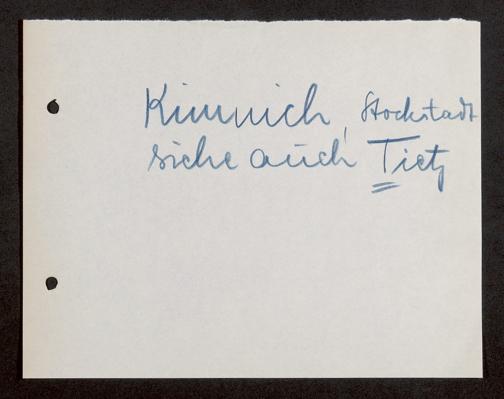 Kimmich, Stockstadt
siehe auch Tietz